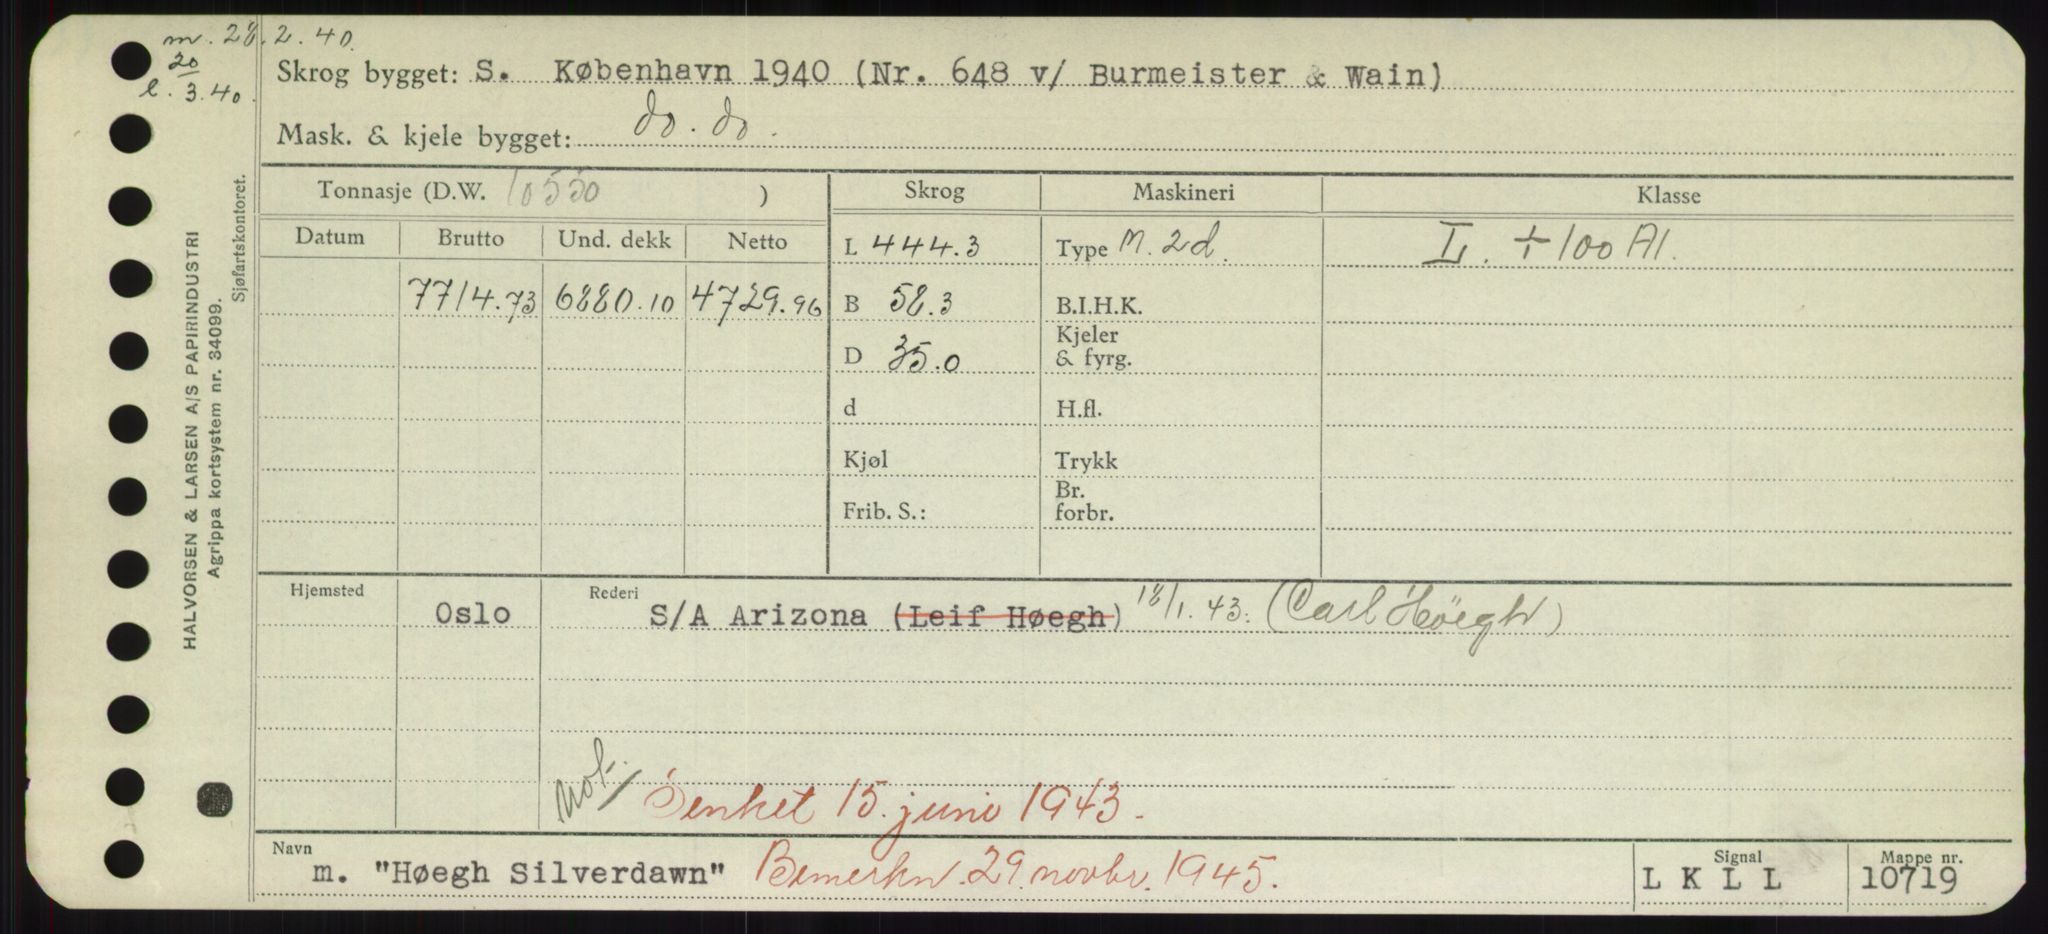 m. 28.2.40.
20
l. 3.40.
Skrog bygget: S. København 1940 (Nr. 648 v/ Burmeister & Wain)
Mask. & kjele bygget: do. do.
Tonnasje (D.W. 10550 ) Skrog Maskineri Klasse
Datum Brutto Und. dekk Netto L 444.3 Type M. 2d. L. + 100 A1.
7714.73 6880.10 4729.96 B 58.3 B.I.H.K.
D 35.0 Kjeler & fyrg.
d H.fl.
Kjøl Trykk
Frib. S.: Br. forbr.
Hjemsted Rederi
Oslo S/A Arizona (Leif Høegh) 18/1.43. (Carl Høegh)
not. Senket 15. juni 1943.
Navn Signal Mappe nr.
m. "Høegh Silverdawn" Bemerkn. 29. novbr. 1945. L K L L 10719
HALVORSEN & LARSEN A/S PAPIRINDUSTRI
Agrippa kortsystem nr. 34099.
Sjøfartskontoret.